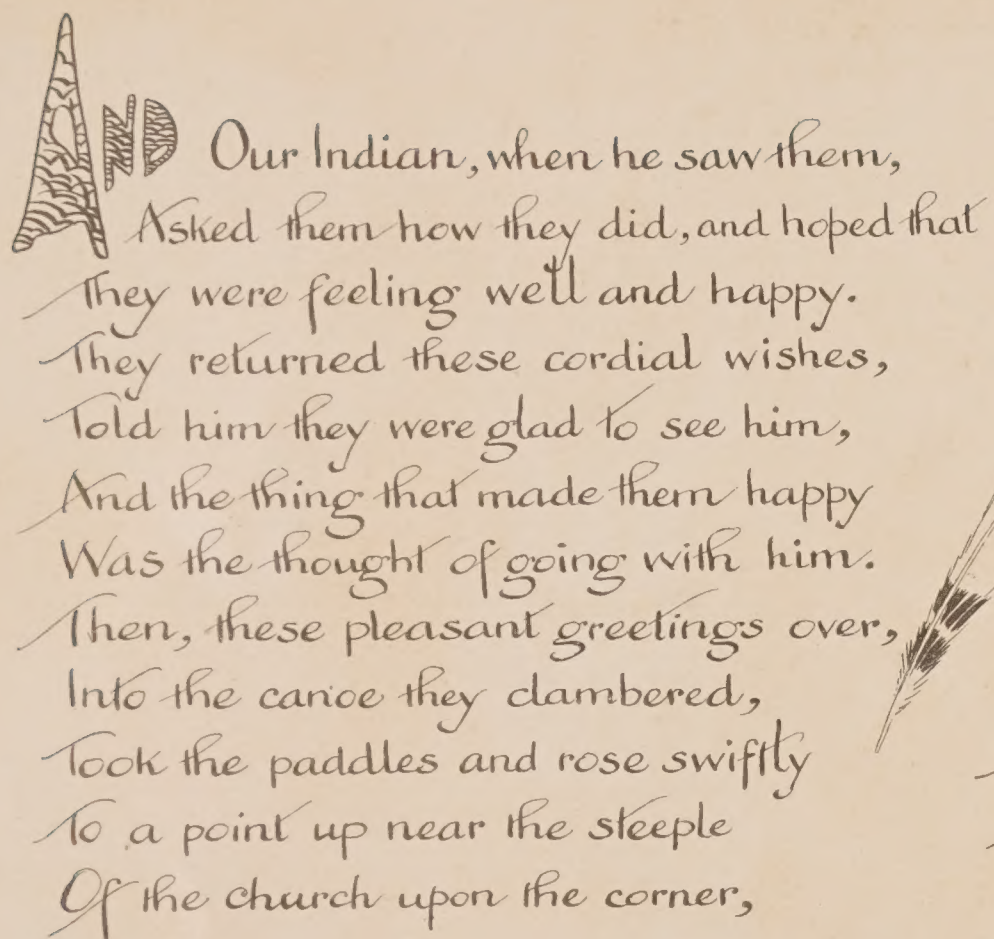 AND Our Indian, when he saw them,
Asked them how they did, and hoped that
They were feeling well and happy.
They returned these cordial wishes,
Told him they were glad to see him,
And the thing that made them happy
Was the thought of going with him.
Then, these pleasant greetings over,
Into the canoe they clambered,
Took the paddles and rose swiftly
To a point up near the steeple
Of the church upon the corner,